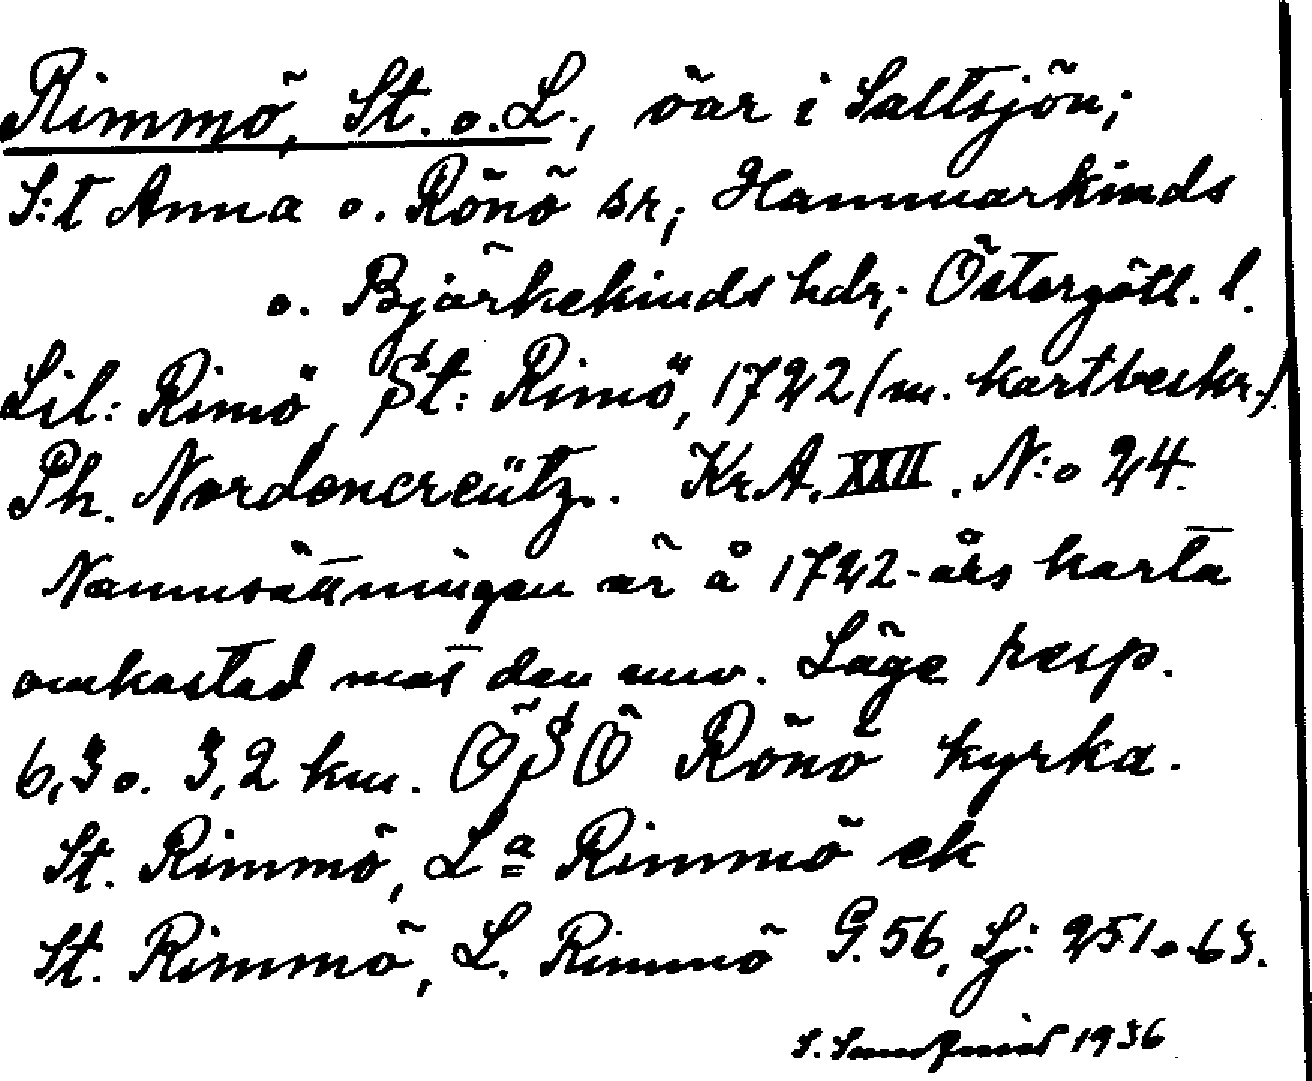 Rimmö, St. o. L., öar i Saltsjön;
S:t Anna o. Rönö sn; Hammarkinds
o. Björkekinds hdr; Östergötl. l.
Lil: Rimö, St: Rimö, 1722 (m. kartbeskr.)
Ph. Nordencreütz. Kr.A. XXII. N:o 24.
Namnsättningen är å 1722-års karta
omkastad mot den nuv. Läge resp.
6,3 o. 3,2 km. ÖSÖ Rönö kyrka.
St. Rimmö, La Rimmö ek
St. Rimmö, L. Rimmö G. 56, Sj: 251 o. 63.
S. 1936